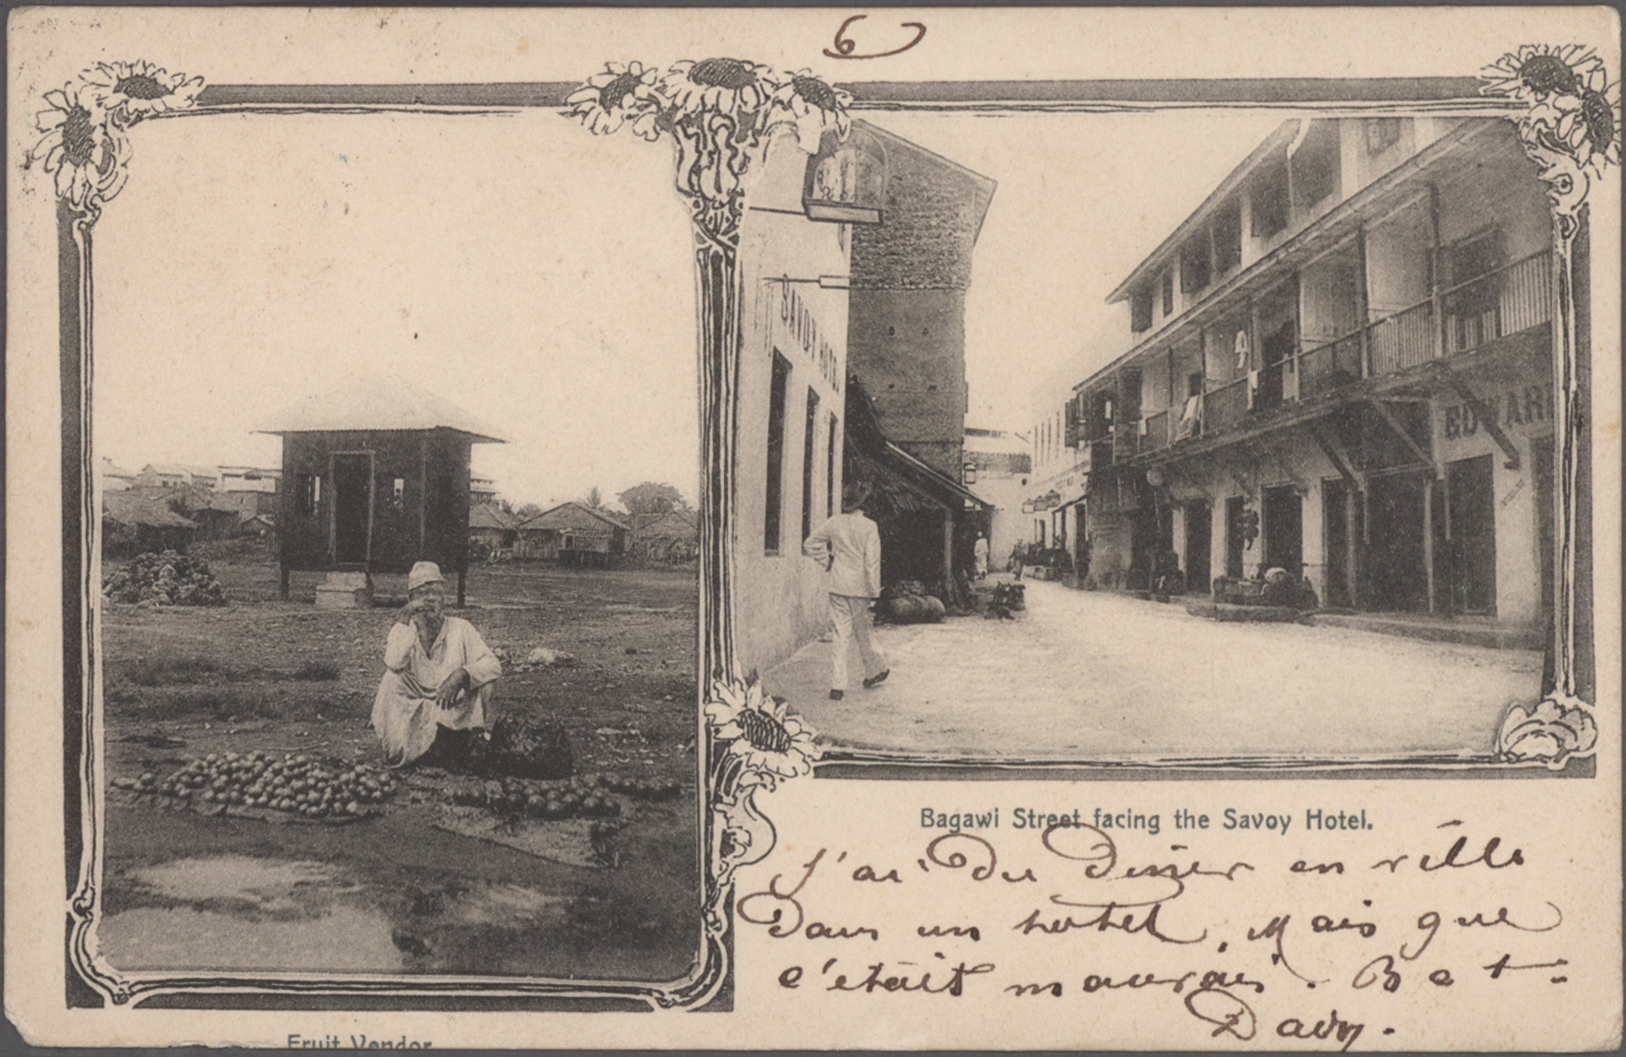 6
SAVOY HOTEL
EDWARD
Bagawi Street facing the Savoy Hotel.
J'ai du Diner en ville
Dans un hotel, Mais que
c'était mauvais. B e t =
Davy.
Fruit Vendor